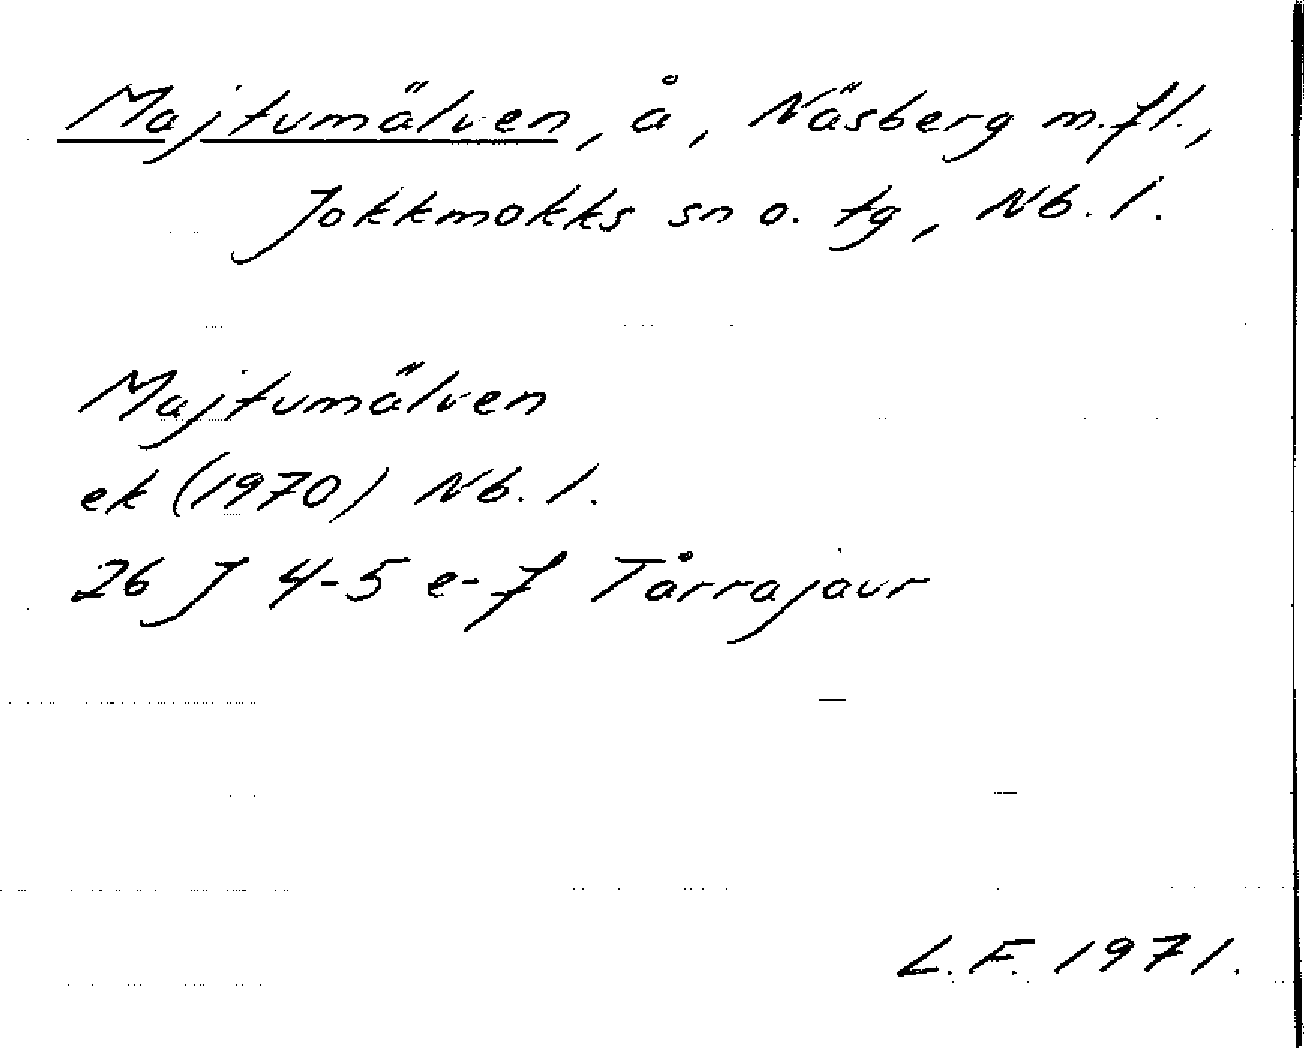 Majtumälven, å, Näsberg m.fl.,
Jokkmokks sn o. tg, Nb. l.
Majtumälven
ek (1970) Nb. l.
26 J 4-5 e-f Tårrajaur
L.F. 1971.